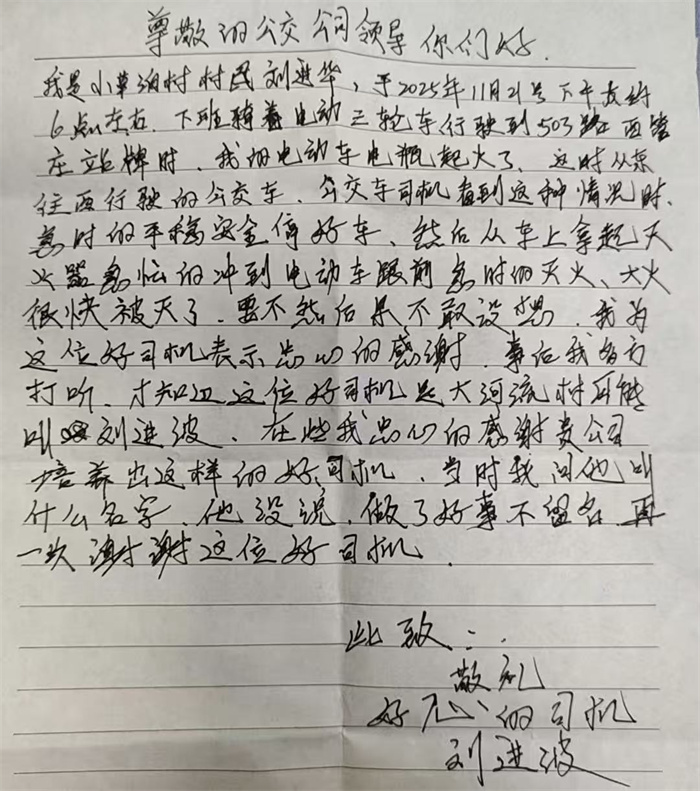 尊敬的公交公司领导你们好.
我是小草泊村村民刘进华,于2025年11月21号下午大约
6点左右.下班骑着电动三轮车行驶到503路西管
庄站牌时.我的电动车电瓶起火了.这时从东
往西行驶的公交车.公交车司机看到这种情况时.
急时的平稳安全停好车、然后从车上拿起灭
火器急忙的冲到电动车跟前急时的灭火、大火
很快被灭了.要不然后果不敢设想.我为
这位好司机表示忠心的感谢.事后我多方
打听.才知道这位好司机是大河流村
叫刘进波、在些我忠心的感谢贵公司
培养出这样的好司机.当时我问他叫
什么名字.他没说.做了好事不留名.再
一次谢谢这位好司机.
此致:.
敬礼
好心的司机
刘进波